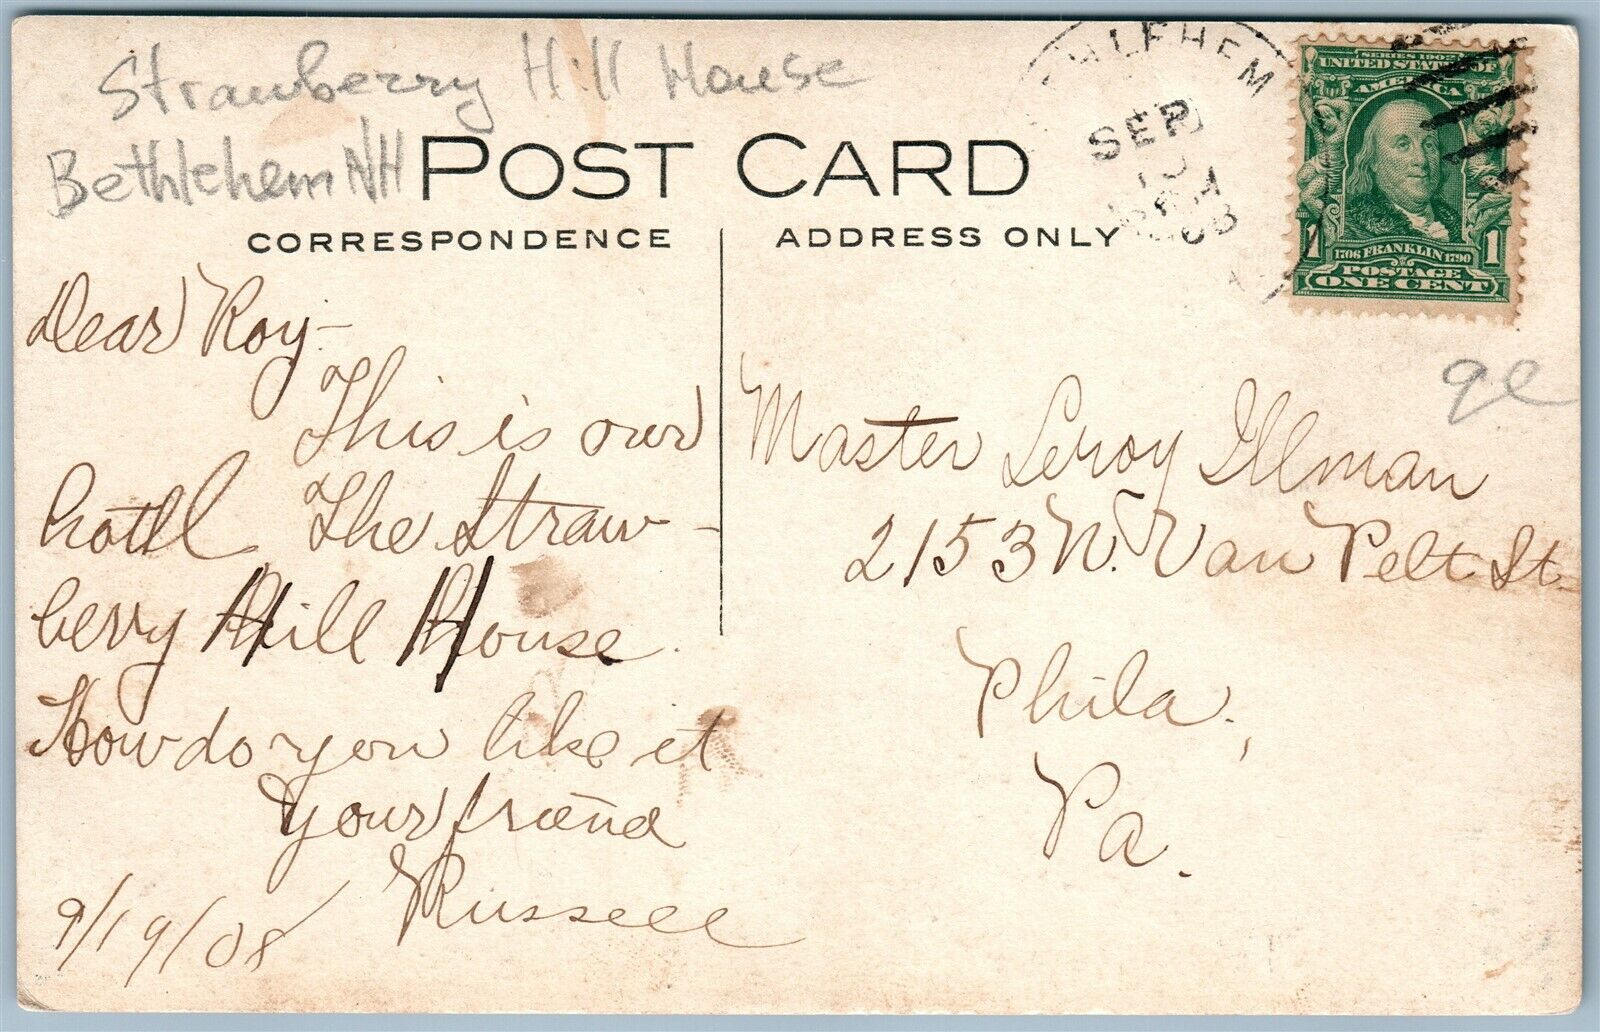 Strawberry Hill House
Bethlehem NH
POST CARD
CORRESPONDENCE
ADDRESS ONLY
HLEHEM
SEP
SERIES 1902
UNITED STATES OF
AMERICA
1 1
1706 FRANKLIN 1790
POSTAGE
ONE CENT
Dear Roy-
This is our
hotel The Straw-
berry Hill House.
How do you like it
Your friend
Russell
9/19/08
Master Leroy Illman
2153 N. Van Pelt St
Phila,
Pa.